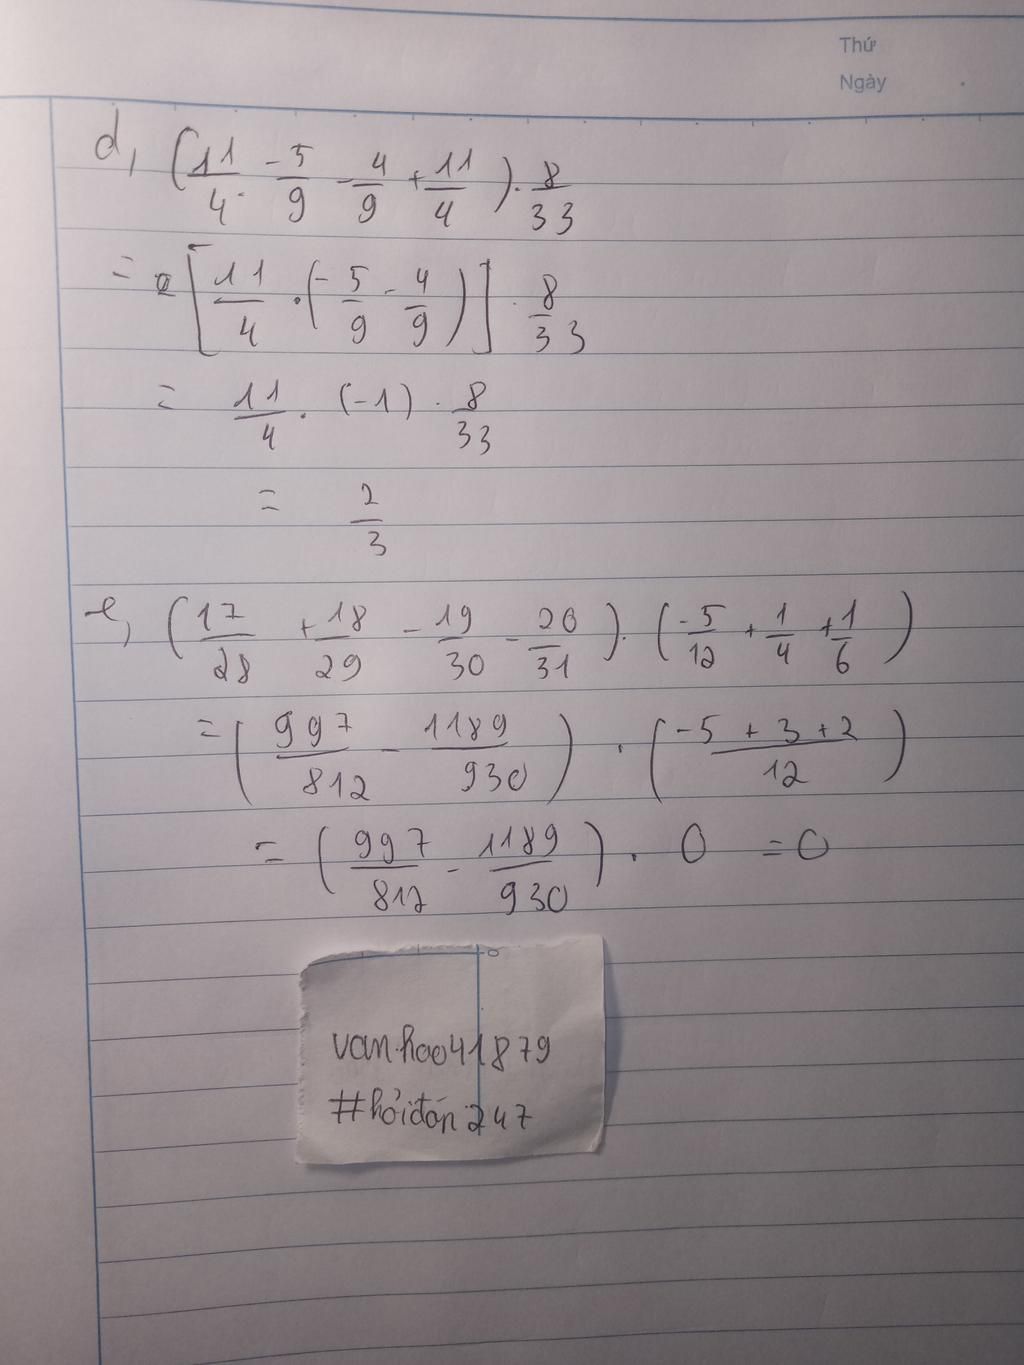 Thứ
Ngày
d, (11/4 - 5/9 - 4/9 + 11/4) . 8/33
= [11/4 . (-5/9 - 4/9)] . 8/33
= 11/4 . (-1) . 8/33
= 2/3
e, (17/28 + 18/29 - 19/30 - 20/31) . (-5/12 + 1/4 + 1/6)
= (997/812 - 1189/930) . (-5 + 3 + 2/12)
= (997/812 - 1189/930) . 0 = 0
vanhao41879
#hỏiđáp247